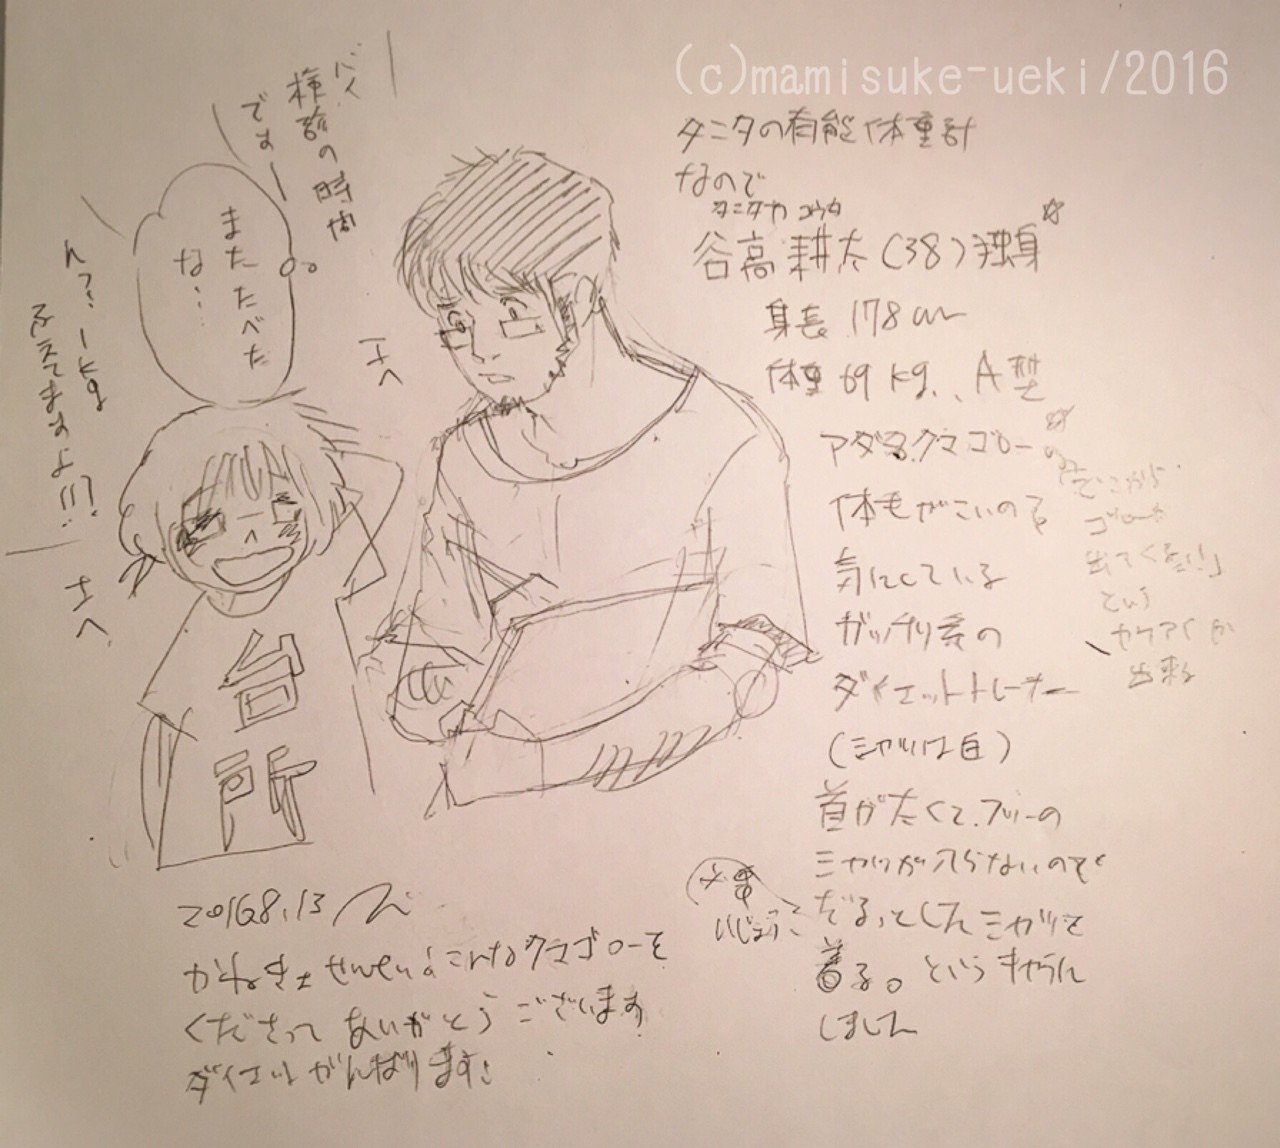 (c)mamisuke-ueki/2016
タニタの有能体重計
なので
タニタカ コウタ
谷高 耕太(38)独身☆
身長 178cm
体重 69kg、A型
アダ名クマゴロー☆
体毛がこいのを
気にしている
ガッチリ系の
ダイエットトレーナー
(シャツは白)
首が太くて、フツーの
シャツが入らないので
だるっとしたシャツを
着る。というキャラに
しました
どこから
ゴローが
出てくる!!」
という
やりとりが
出来る
検診の時間
でまー
また たべた
な…
1kg
ふえてますよ!!?
台所
2016.8.13
かねきょせんせい こんなクマゴローを
くださって ありがとうございます
ダイエットがんばります!